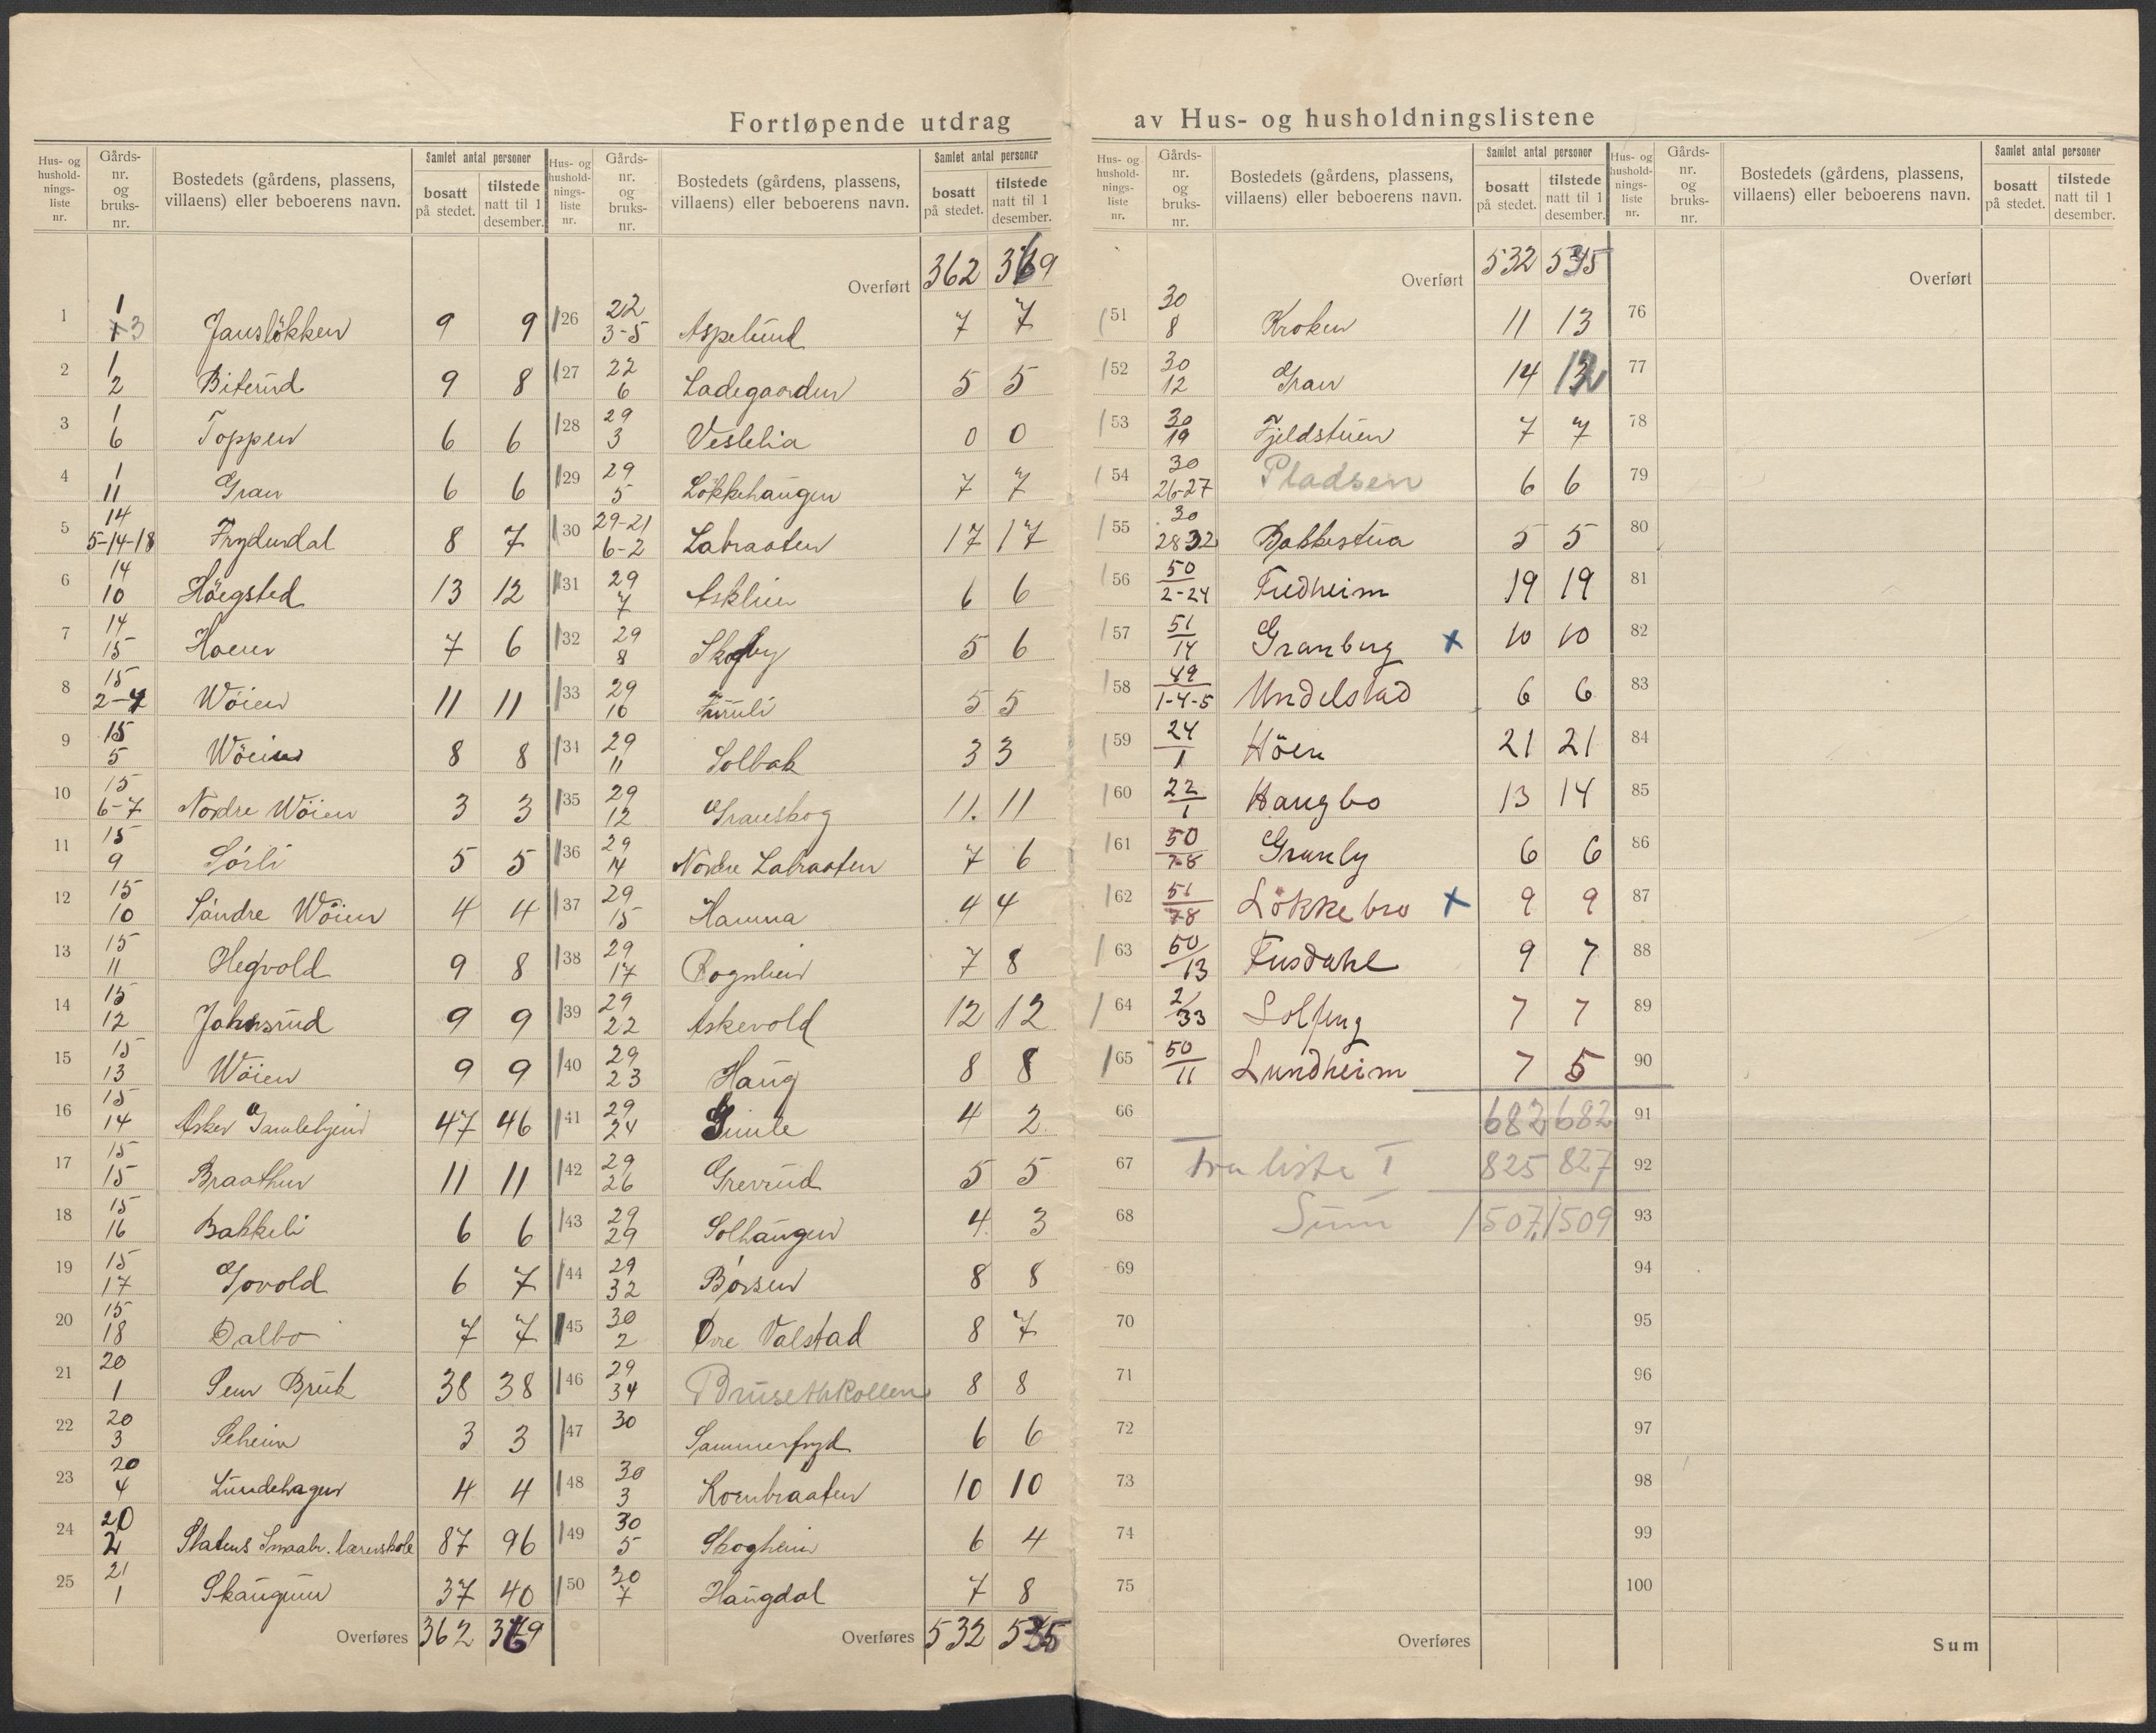 Fortløpende utdrag av Hus- og husholdningslistene
Hus- og husholdnings-liste nr. | Gårds-nr. og bruks-nr. | Bostedets (gårdens, plassens, villaens) eller beboerens navn. | Samlet antal personer | bosatt på stedet. | tilstede natt til 1 desember.
1 | 1 / 1 3 | Jansløkken | 9 | 9
2 | 1 / 2 | Biterud | 9 | 8
3 | 1 / 6 | Toppen | 6 | 6
4 | 1 / 11 | Gran | 6 | 6
5 | 14 / 5-14-18 | Frydendal | 8 | 7
6 | 14 / 10 | Höegsted | 13 | 12
7 | 14 / 15 | Hoen | 7 | 6
8 | 15 / 2-4 | Wöien | 11 | 11
9 | 15 / 5 | Wöien | 8 | 8
10 | 15 / 6-7 | Nordre Wöien | 3 | 3
11 | 15 / 9 | Sörli | 5 | 5
12 | 15 / 10 | Söndre Wöien | 4 | 4
13 | 15 / 11 | Hegvold | 9 | 8
14 | 15 / 12 | Johnsrud | 9 | 9
15 | 15 / 13 | Wöien | 9 | 9
16 | 15 / 14 | Asker Gamlehjem | 47 | 46
17 | 15 / 15 | Braathen | 11 | 11
18 | 15 / 16 | Bakkeli | 6 | 6
19 | 15 / 17 | Govold | 6 | 7
20 | 15 / 18 | Dalbo | 7 | 7
21 | 20 / 1 | Sem Bruk | 38 | 38
22 | 20 / 3 | Seheim | 3 | 3
23 | 20 / 4 | Lundehagen | 4 | 4
24 | 20 / 2 | Statens Smaabr. lærerskole | 87 | 96
25 | 21 / 1 | Skaugum | 37 | 40
Overføres 362 369
Hus- og husholdnings-liste nr. | Gårds-nr. og bruks-nr. | Bostedets (gårdens, plassens, villaens) eller beboerens navn. | Samlet antal personer | bosatt på stedet. | tilstede natt til 1 desember.
Overført 362 369
26 | 22 / 3-5 | Aspelund | 7 | 7
27 | 22 / 6 | Ladegaarden | 5 | 5
28 | 29 / 3 | Veslelia | 0 | 0
29 | 29 / 5 | Løkkehaugen | 7 | 7
30 | 29-21 / 6-2 | Labraaten | 17 | 17
31 | 29 / 7 | Asklien | 6 | 6
32 | 29 / 8 | Skogby | 5 | 6
33 | 29 / 10 | Furuli | 5 | 5
34 | 29 / 11 | Solbak | 3 | 3
35 | 29 / 12 | Granskog | 11. | 11
36 | 29 / 14 | Nordre Labraaten | 7 | 6
37 | 29 / 15 | Hamna | 4 | 4
38 | 29 / 17 | Rognheim | 7 | 8
39 | 29 / 22 | Askevold | 12 | 12
40 | 29 / 23 | Haug | 8 | 8
41 | 29 / 24 | Gimle | 4 | 2
42 | 29 / 26 | Grevrud | 5 | 5
43 | 29 / 29 | Solhaugen | 4 | 3
44 | 29 / 32 | Børsen | 8 | 8
45 | 30 / 2 | Øvre Valstad | 8 | 7
46 | 29 / 34 | Brusethkollen | 8 | 8
47 | 30 | Sommerfryd | 6 | 6
48 | 30 / 3 | Kornbraaten | 10 | 10
49 | 30 / 5 | Skogheim | 6 | 4
50 | 30 / 7 | Haugdal | 7 | 8
Overføres 532 535
Hus- og husholdnings-liste nr. | Gårds-nr. og bruks-nr. | Bostedets (gårdens, plassens, villaens) eller beboerens navn. | Samlet antal personer | bosatt på stedet. | tilstede natt til 1 desember.
Overført 532 535
51 | 30 / 8 | Kroken | 11 | 13
52 | 30 / 12 | Gran | 14 | 12
53 | 30 / 19 | Fjeldstuen | 7 | 7
54 | 30 / 26-27 | Pladsen | 6 | 6
55 | 30 / 28 32 | Bakkestua | 5 | 5
56 | 50 / 2-24 | Fredheim | 19 | 19
57 | 51 / 14 | Granberg x | 10 | 10
58 | 49 / 1-4-5 | Undelstad | 6 | 6
59 | 24 / 1 | Höen | 21 | 21
60 | 22 / 1 | Haugbo | 13 | 14
61 | 50 / 7-8 | Granly | 6 | 6
62 | 51 / 78 | Løkkebro x | 9 | 9
63 | 50 / 13 | Fusdahl | 9 | 7
64 | 2 / 33 | Solfeng | 7 | 7
65 | 50 / 11 | Lundheim | 7 | 5
66 | 682 | 682
67 | Fra liste I | 825 | 827
68 | Sum | 1507 | 1509
69
70
71
72
73
74
75
Overføres
Hus- og husholdnings-liste nr. | Gårds-nr. og bruks-nr. | Bostedets (gårdens, plassens, villaens) eller beboerens navn. | Samlet antal personer | bosatt på stedet. | tilstede natt til 1 desember.
Overført
76
77
78
79
80
81
82
83
84
85
86
87
88
89
90
91
92
93
94
95
96
97
98
99
100
Sum